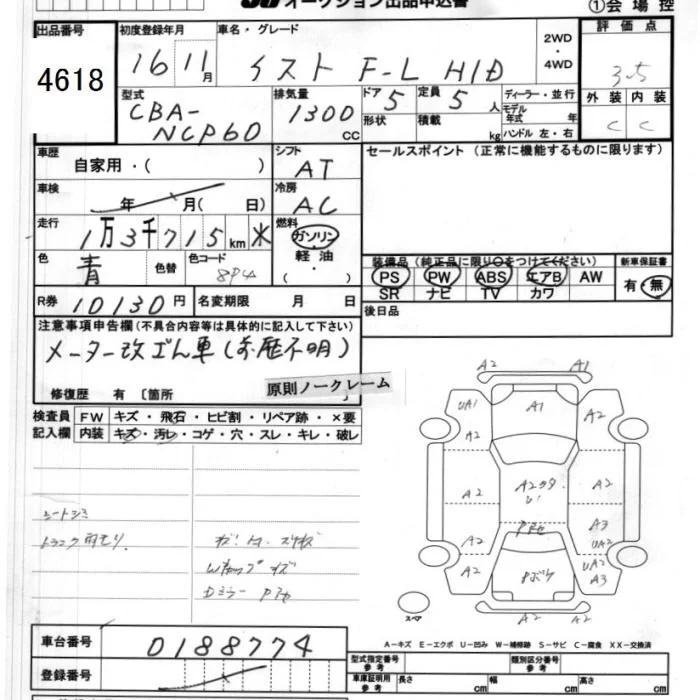 オークション出品申込書 ①会場控
出品番号 初度登録年月 車名・グレード 2WD・4WD 評価点
4618 16 11月 イスト F-L HID 3.5
型式 排気量 ドア 定員 ディーラー・並行 外装 内装
CBA-NCP60 1300CC 5 5人 モデル年式 年 C C
形状 積載 kg ハンドル 左・右
車歴 シフト セールスポイント (正常に機能するものに限ります)
自家用・( ) AT
車検 年 月( 日) 冷房 AC
走行 燃料
1万3千715km ※ ガソリン
軽油・( )
色 青 色替 色コード 8P4
装備品(純正品に限り○をつけてください) 新車保証書
PS PW ABS エアB AW 有・無
SR ナビ TV カワ
R券 10130円 名変期限 月 日 後日品
注意事項申告欄(不具合内容等は具体的に記入して下さい)
メーター改ざん車(走歴不明)
原則ノークレーム
修復歴 有 〔箇所 〕
検査員 FW キズ・飛石・ヒビ割・リペア跡・×要
記入欄 内装 キズ・汚レ・コゲ・穴・スレ・キレ・破レ
シートシミ
トランク雨モリ
Dミラー
A2 A1
UA1 A1 A2
A2
A2 A2
A2 A3
UA2
A2 UA2
A3
A2 A2
スペア
車台番号 0188774
登録番号
A-キズ E-エクボ U-凹み W-補修跡 S-サビ C-腐食 XX-交換済
型式指定番号 参考 類別区分番号 参考
車庫証明用 参考 長さ cm 幅 cm 高さ cm